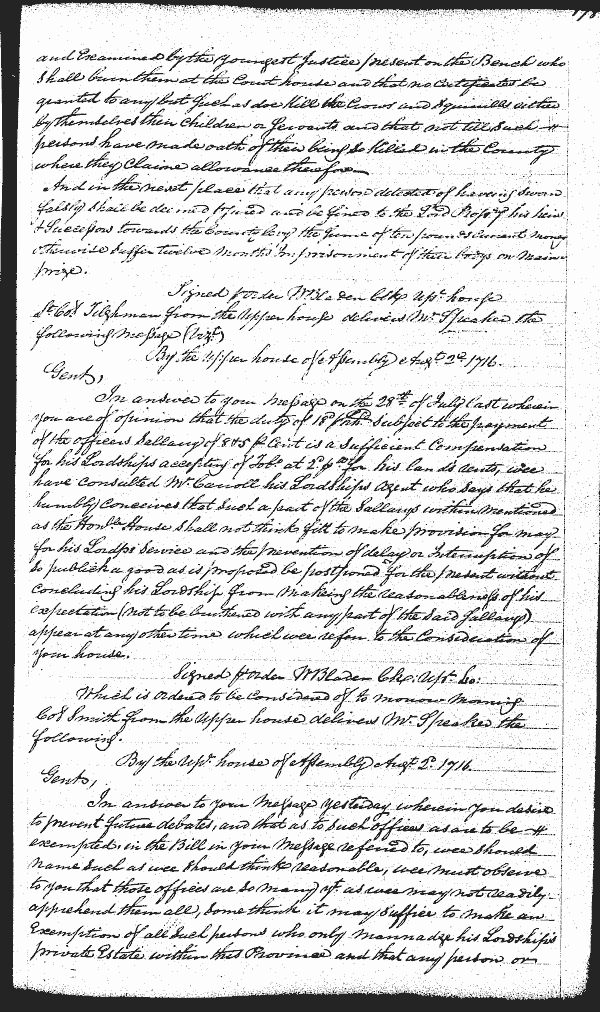 178
and Examined by the youngest Justice present on the Bench who
shall burn them at the Court house and that no certificates be
granted to any but such as doe kill the Crows and Squirills either
by themselves their Children or Servants and that not till such
persons have made oath of their being so killed in the County
where they Claime allowance therefor
And in the next place that any person detected of having sworn
falsly shall be deemed perjured and be fined to the Lord Propry his heirs
& Successors towards the County Levy the sume of ten pounds Current money
otherwise suffer twelve months Imprisonment of their bodys on Main
prize.
Signed p order W Bladen Clk Upr. house
Lt Col Tilghman from the Upper house delivers Mr. Speaker the
following Message (Vizt)
By the Upper house of Assembly Augt. 2d 1716.
Gents,
In answer to your Message on the 28th of July last wherein
you are of opinion that the duty of 18d Subject to the payment
of the officers Sallarys of 8 & 5 p Cent is a Sufficient Compensation
for his Lordships accepting of Tobo. at 2d p for his Lands rents, wee
have consulted Mr. Carroll his Lordships Agent who says that he
humbly conceives that such a part of the Sallarys within mentioned
as the Honble. House shall not think fitt to make provision for may
for his Lordps Service and the prevention of delay or Interruption of
so publick a good as is proposed be postponed for the present without
concluding his Lordship from making the reasonableness of his
expectation (not to be burthened with any part of the said Sallarys)
appear at any other time which wee refer to the Consideration of
your house.
Signed p order W Bladen Clk: Upr. Ho:
Which is ordered to be considered of to morrow Morning
Col Smith from the Upper house delivers Mr. Speaker the
following.
By the Upr. house of Assembly Augt. 2d. 1716.
Gents,
In answer to your Message yesterday wherein you desire
to prevent future debates, and that as to such offices as are to be
exempted, in the Bill in your Message referred to, wee should
name such as wee should think reasonable, wee must observe
to you that those offices are so many yt. as wee may not readily
apprehend them all, some think it may suffice to make an
Exemption of all such persons who only mannadge his Lordships
private Estate within this Province and that any person or